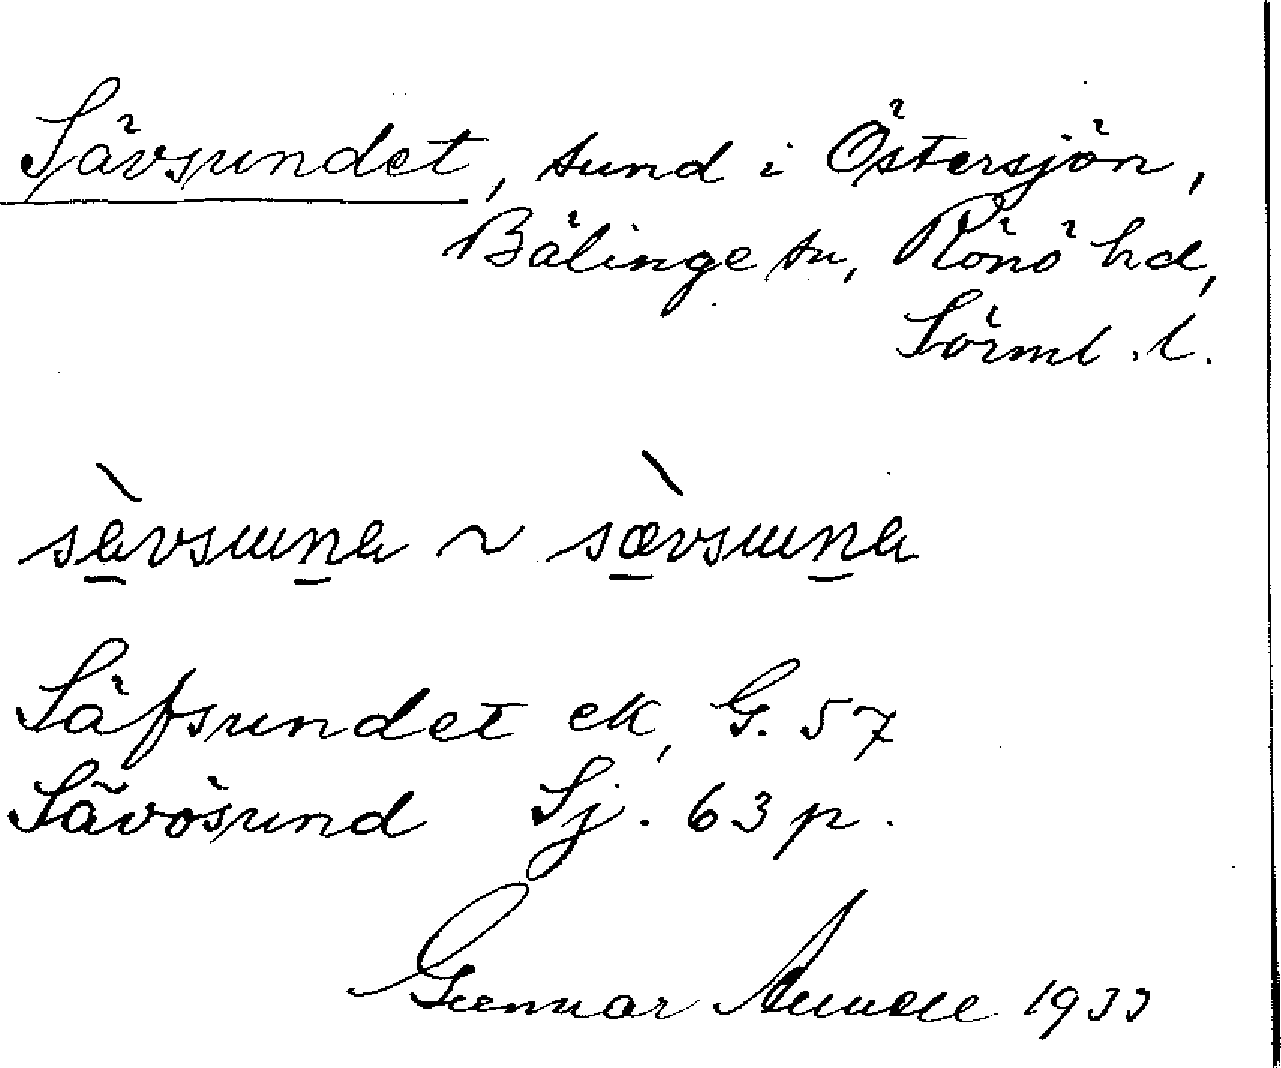 Sävsundet, sund i Östersjön,
Bälinge sn, Rönö hd,
Sörml. l.
sàvsuna ~ sæ̀vsuna
Säfsundet ek, G. 57
Sävösund Sj. 63 p.
Gunnar 1933